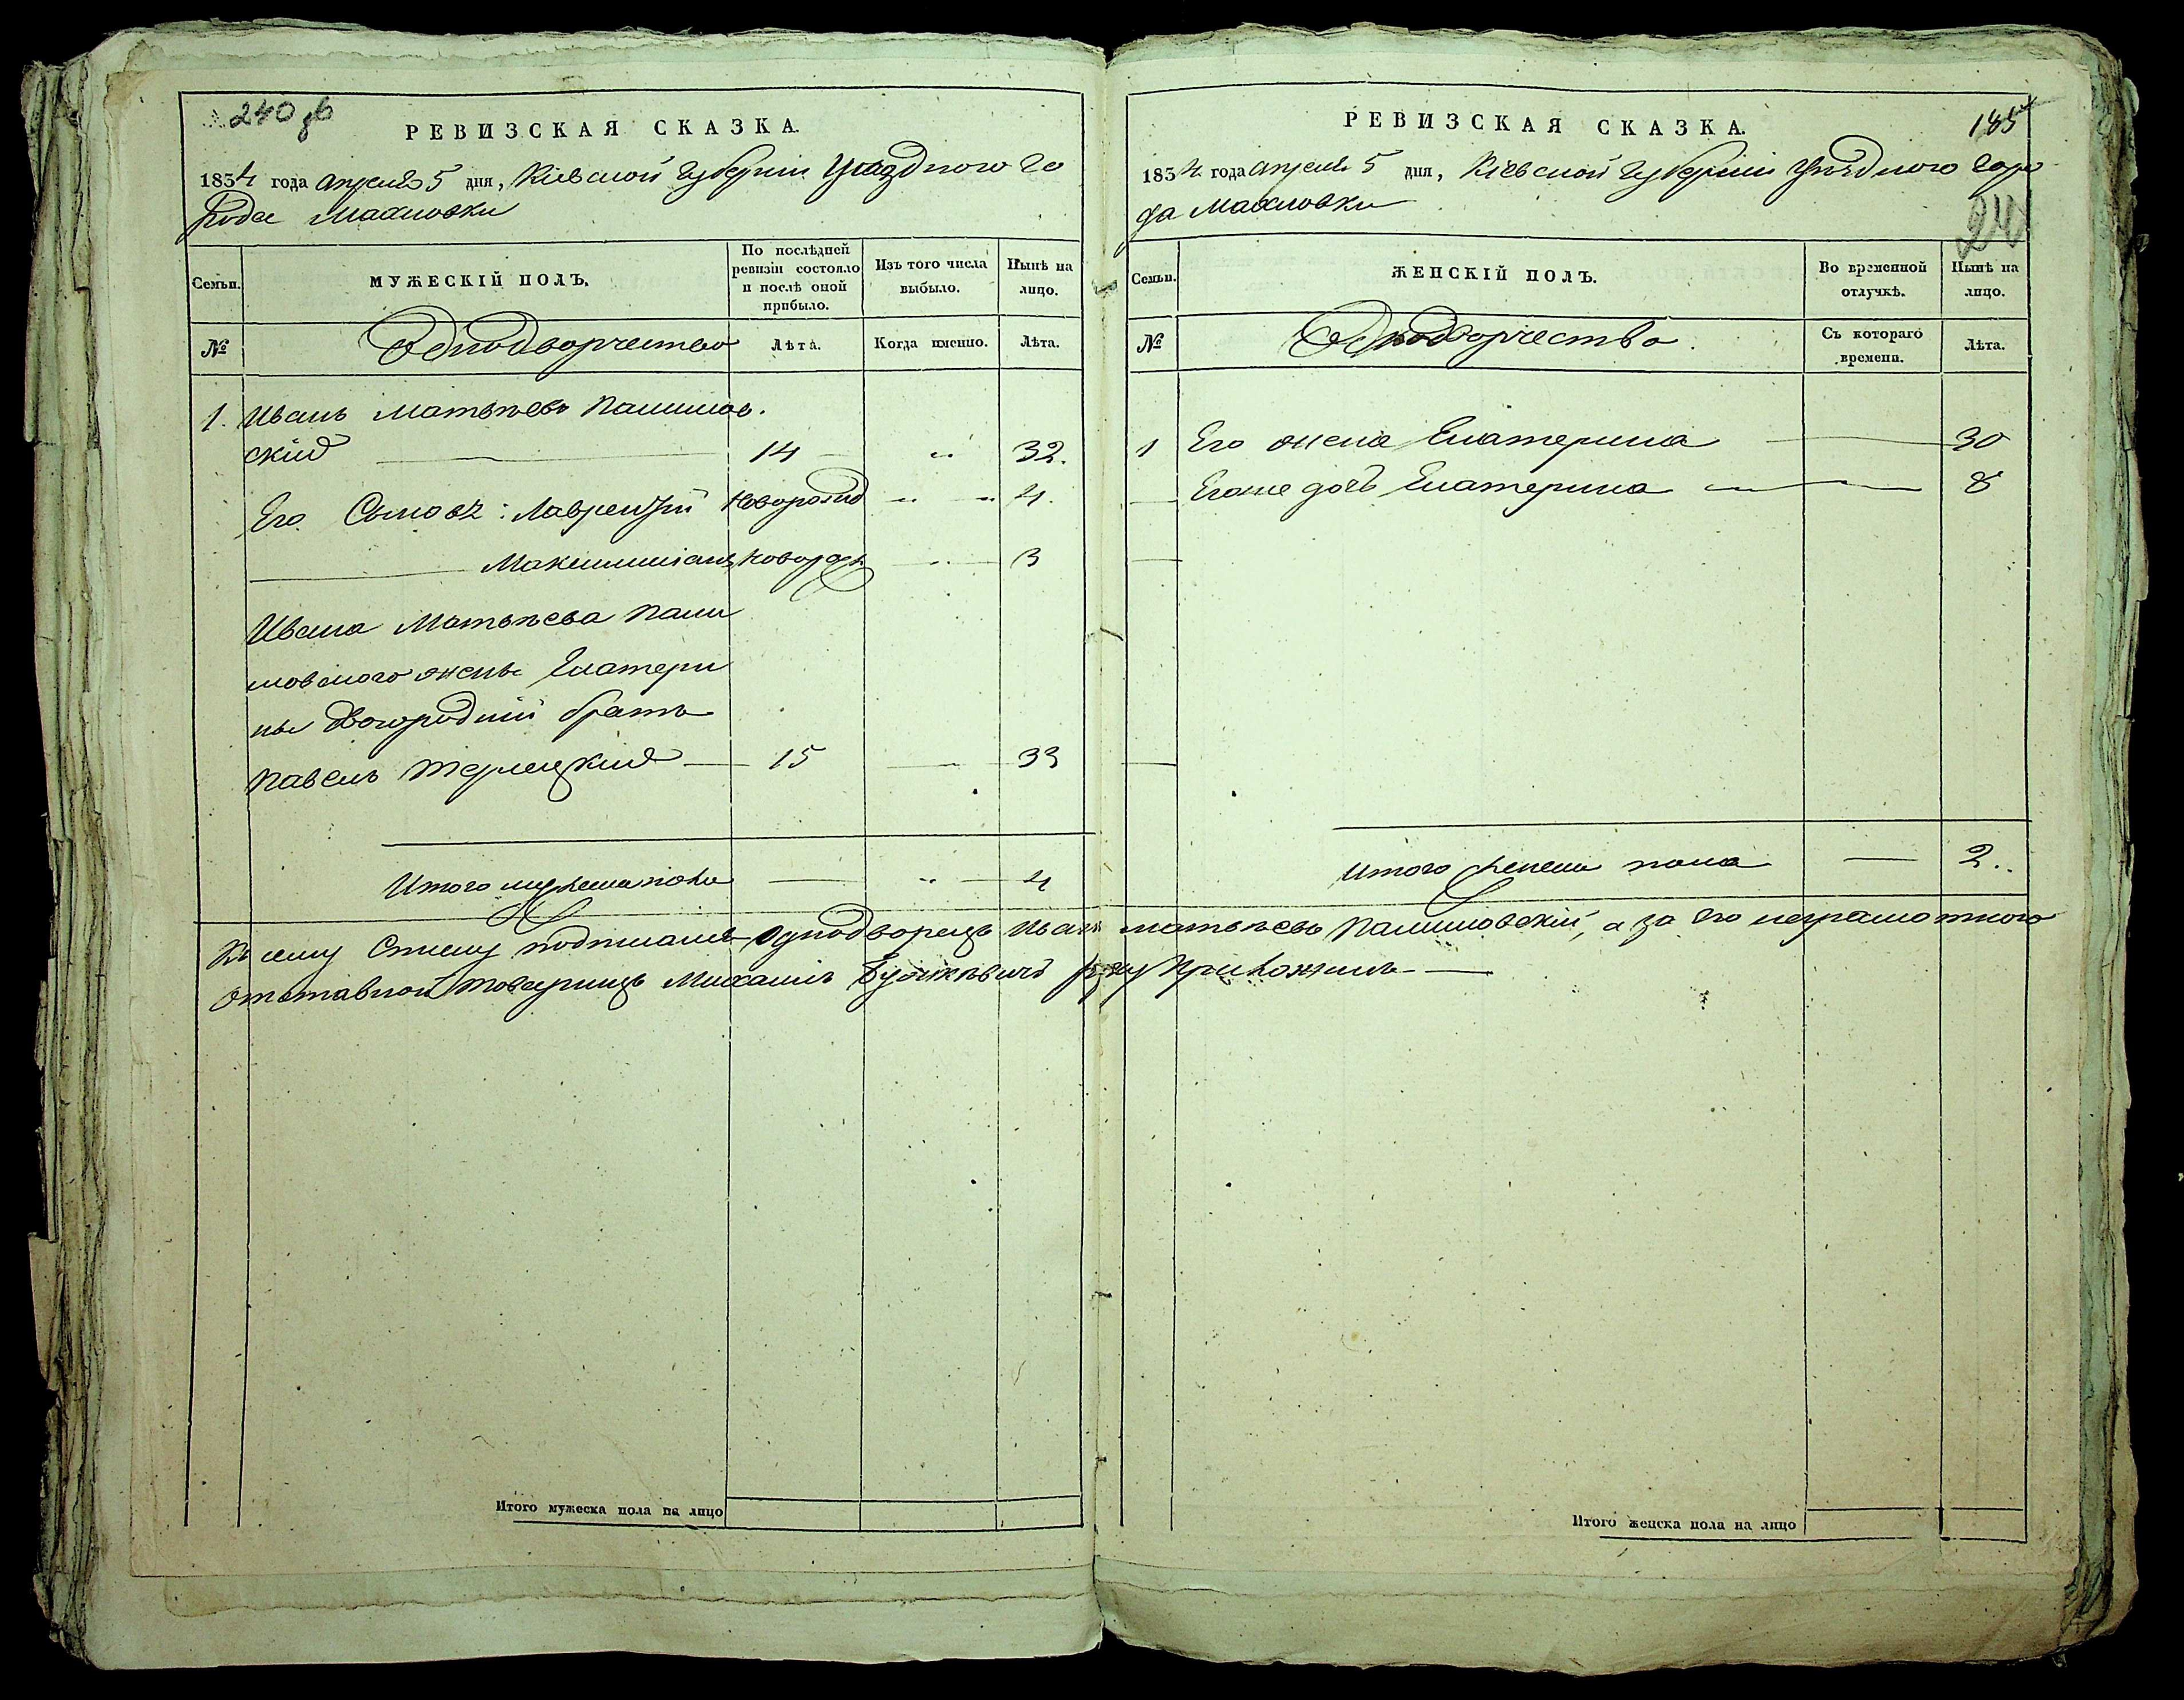 240 об
РЕВИЗСКАЯ СКАЗКА.
1834 года апреля 5 дня, Кіевской губерніи Уѣздного го
рода Махновки
Семьи.
МУЖЕСКІЙ ПОЛЪ.
По послѣдней ревизіи состояло и послѣ оной прибыло.
Изъ того числа выбыло.
Нынѣ на лицо.
№
Однодворчество
Лѣта.
Когда именно.
Лѣта.
1. Иванъ Матвѣевъ Палинов.
скій 14 32.
Его Сыновя: Лаврентій Новорожд 4.
Максимиліанъ новорож. 3
Ивана Матвѣева Пали
новского жены Екатери
ны двоюродній братъ
Павелъ Терлецкій 15 33
Итого мужеска пола 4
Итого мужеска пола на лицо
РЕВИЗСКАЯ СКАЗКА.
185
1834 года апреля 5 дня, Кіевской губерніи Уѣздного горо
да Махновки
24
Семьи.
ЖЕНСКІЙ ПОЛЪ.
Во временной отлучкѣ.
Нынѣ на лицо.
№
Однодворчество.
Съ котораго времени.
Лѣта.
1 Его жена Екатерина 30
Егоже дочь Екатерина 8
Итого женска пола 2.
Итого женска пола на лицо
Къ сему Списку подписался Однодворецъ Иванъ Матвѣевъ Палиновскій, а за его неграмотного
Отставной товарищъ Михаилъ руку приложилъ